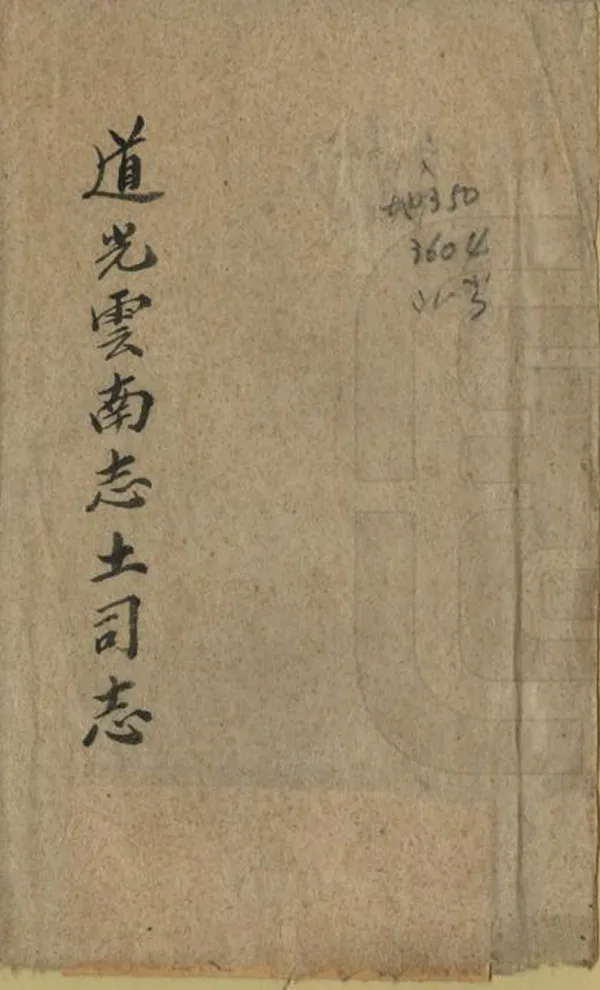 道光雲南志土司志
地350
3604